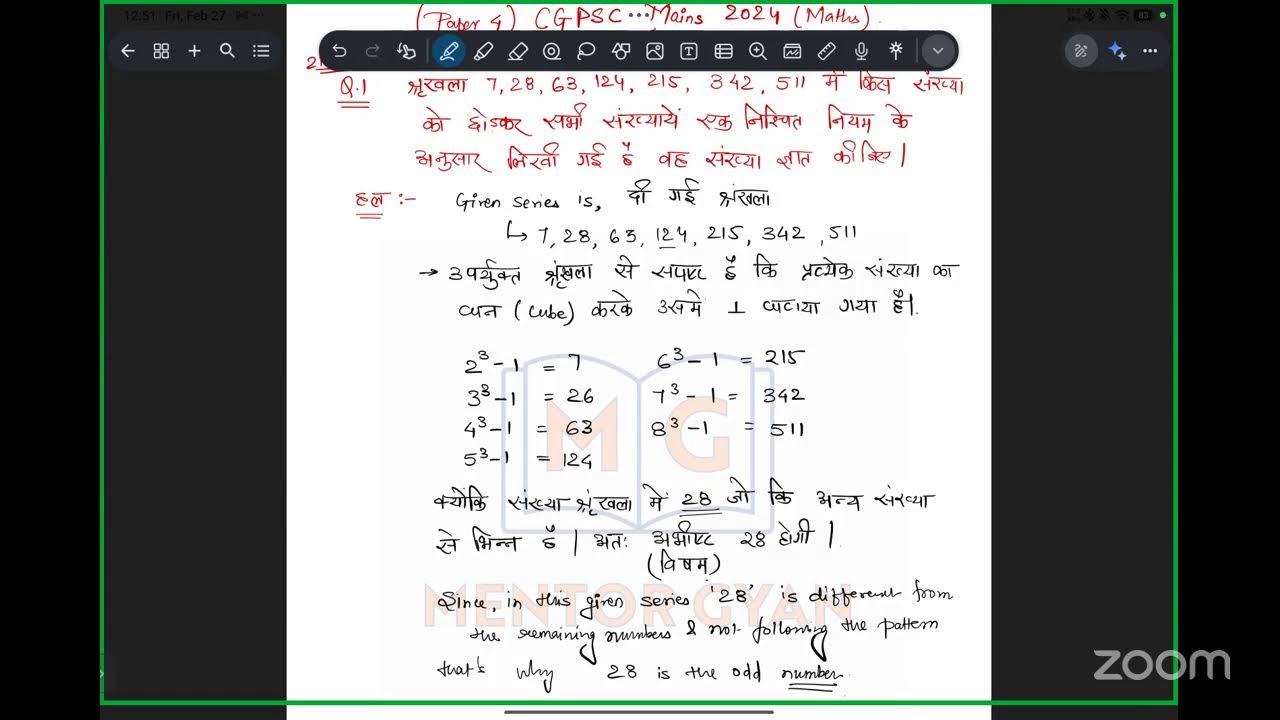 12:51 Fri, Feb 27
83
(Paper 4) CGPSC Mains 2024 (Maths).
Q.1 श्रृंखला 7, 28, 63, 124, 215, 342, 511 में किस संख्या
को छोडकर सभी संख्यायें एक निश्चित नियम के
अनुसार लिखी गई है वह संख्या ज्ञात कीजिए।
हल :- Given series is, दी गई श्रृंखला
↳ 7, 28, 63, 124, 215, 342, 511
→ उपर्युक्त श्रृंखला से स्पष्ट है कि प्रत्येक संख्या का
घन (cube) करके उसमे 1 घटाया गया है।
2³ - 1 = 7 6³ - 1 = 215
3³ - 1 = 26 7³ - 1 = 342
4³ - 1 = 63 8³ - 1 = 511
5³ - 1 = 124
M G
क्योंकि संख्या श्रृंखला में 28 जो कि अन्य संख्या
से भिन्न है। अतः अभीष्ट 28 होगी।
(विषम)
MENTOR GYAN
Since, in this given series '28' is different from
the remaining numbers & not following the pattern
that's why 28 is the odd number.
zoom